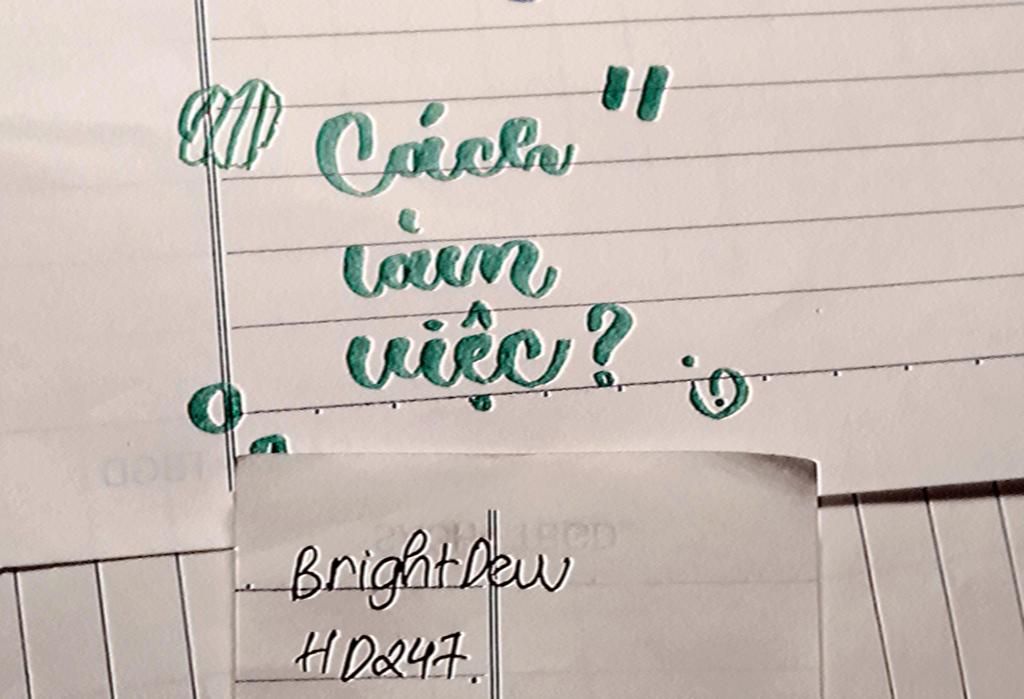 Cách "
làm
việc?
BrightDew
HD247.